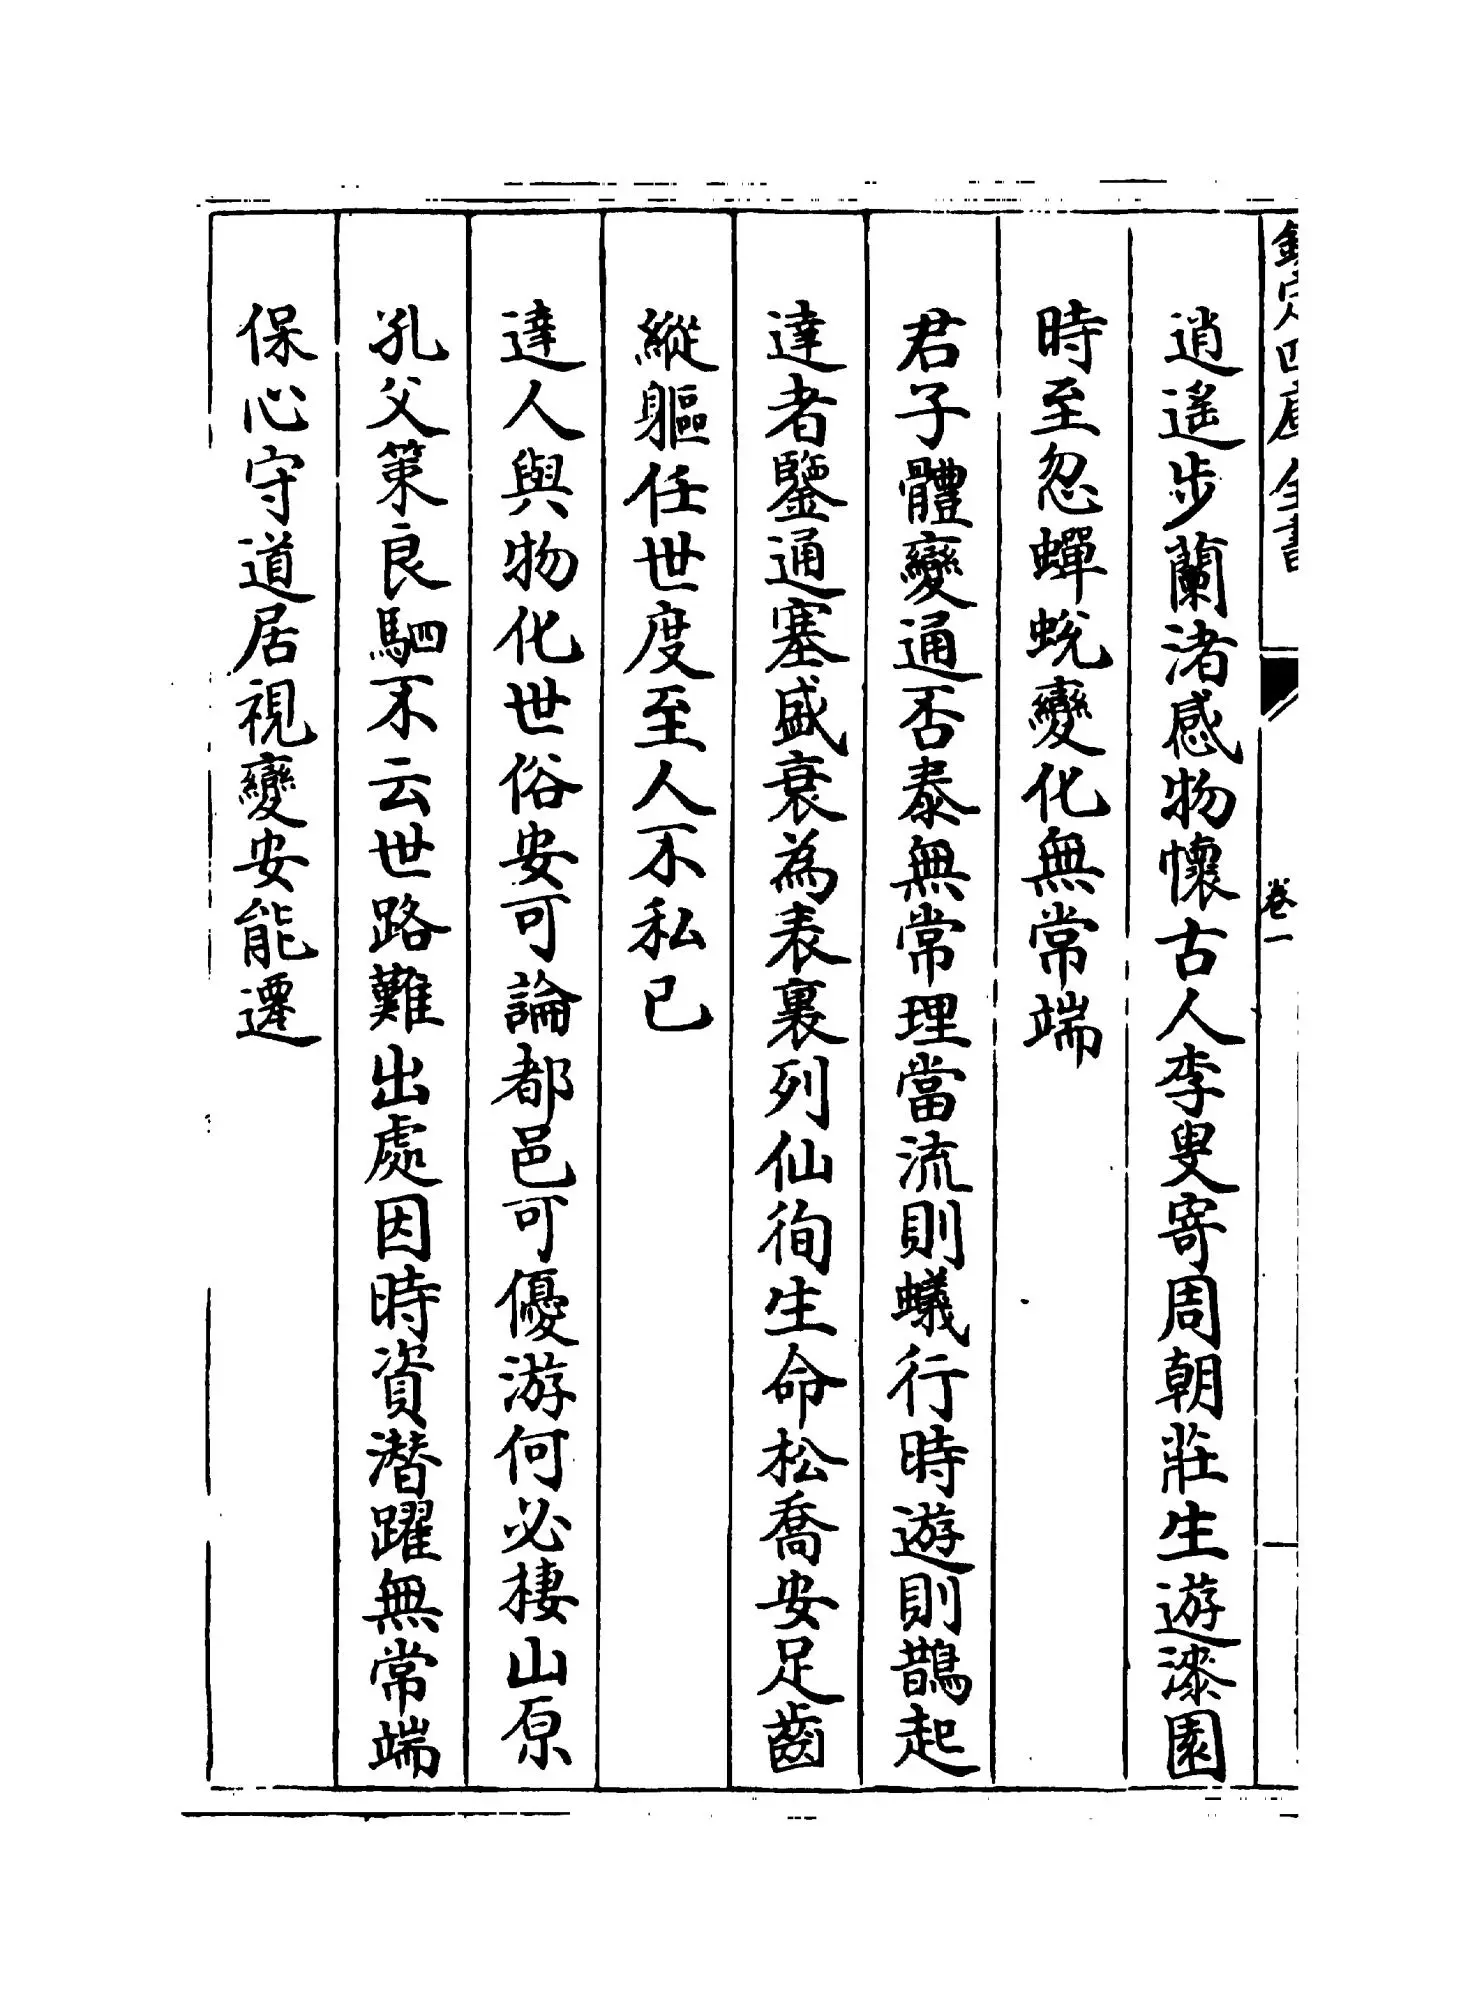 欽定四庫全書
卷一
逍遙步蘭渚感物懷古人李叟寄周朝莊生遊漆園
時至忽蟬蛻變化無常端
君子體變通否泰無常理當流則蟻行時遊則鵲起
達者鑒通塞盛衰為表裏列仙徇生命松喬安足齒
縱軀任世度至人不私已
達人與物化世俗安可論都邑可優游何必棲山原
孔父策良駟不云世路難出處因時資潛躍無常端
保心守道居視變安能遷